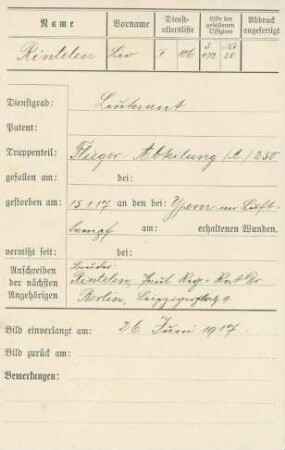 Name Vorname Dienst-altersliste Liste der gefallenen Offiziere Abdruck angefertigt
Rintelen Leo I 106 S. 472 Nr. 28
Dienstgrad: Leutnant
Patent:
Truppenteil: Flieger-Abteilung (A.) 250
gefallen am: bei:
gestorben am: 15 1 17 an den bei: Ypern im Luft-
kampf am: erhaltenen Wunden.
vermißt seit: bei:
Anschreiben der nächsten Angehörigen
Bruder
Rintelen, Paul Reg-Rat Dr
Berlin, Leipzigerplatz 9.
Bild einverlangt am: 26. Juni 1917.
Bild zurück am:
Bemerkungen: